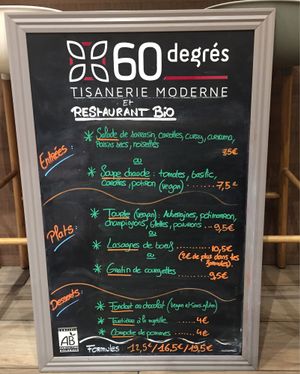 60 degrés
TISANERIE MODERNE
ET
RESTAURANT BIO
Entrées:
* Salade de sarrasin, carottes, curry, curcuma,
noisettes
ou
* Soupe chaude: tomates, basilic,
carottes, poivron (vegan) ....... 7,5€
Plats:
* (vegan): Aubergines, potimarron,
champignons, blettes, poivrons ... 9,5€
ou
* Lasagnes de boeuf ........ 10,5€
(1€ de plus dans les
formules)
* Gratin de courgettes
9,5€
Desserts:
* Fondant au chocolat (vegan et sans gluten)
4€
* à la myrtille ....... 4€
* Compote de pommes ....... 4€
AB
FORMULES 12,5€/16,5€/19,5€